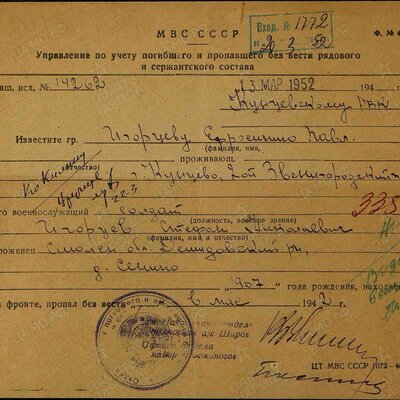 МВС СССР
Ф. №
Вход. № 1772
20 3 1952
Управление по учету погибшего и пропавшего без вести рядового
и сержантского состава
исх. № 14262
13 МАР 1952
194
Кунцевскому РВК
Известите гр. Игорцеву Ефросинию Павл.
(фамилия, имя,
отчество)
проживающ.
г. Кунцево, 2ой Звенигородский
223
338
военнослужащий солдат
(должность, воинское звание)
Игорцев Стефан Николаевич
(фамилия, имя и отчество)
уроженец Смолен. обл. Демидовский р-н,
д. Сенино
„907 года рождения, находясь
а фронте, пропал без вести в мае 194
отдела
а/с Широв
Офицер отдела
майор
ЦТ МВС СССР 1072—4